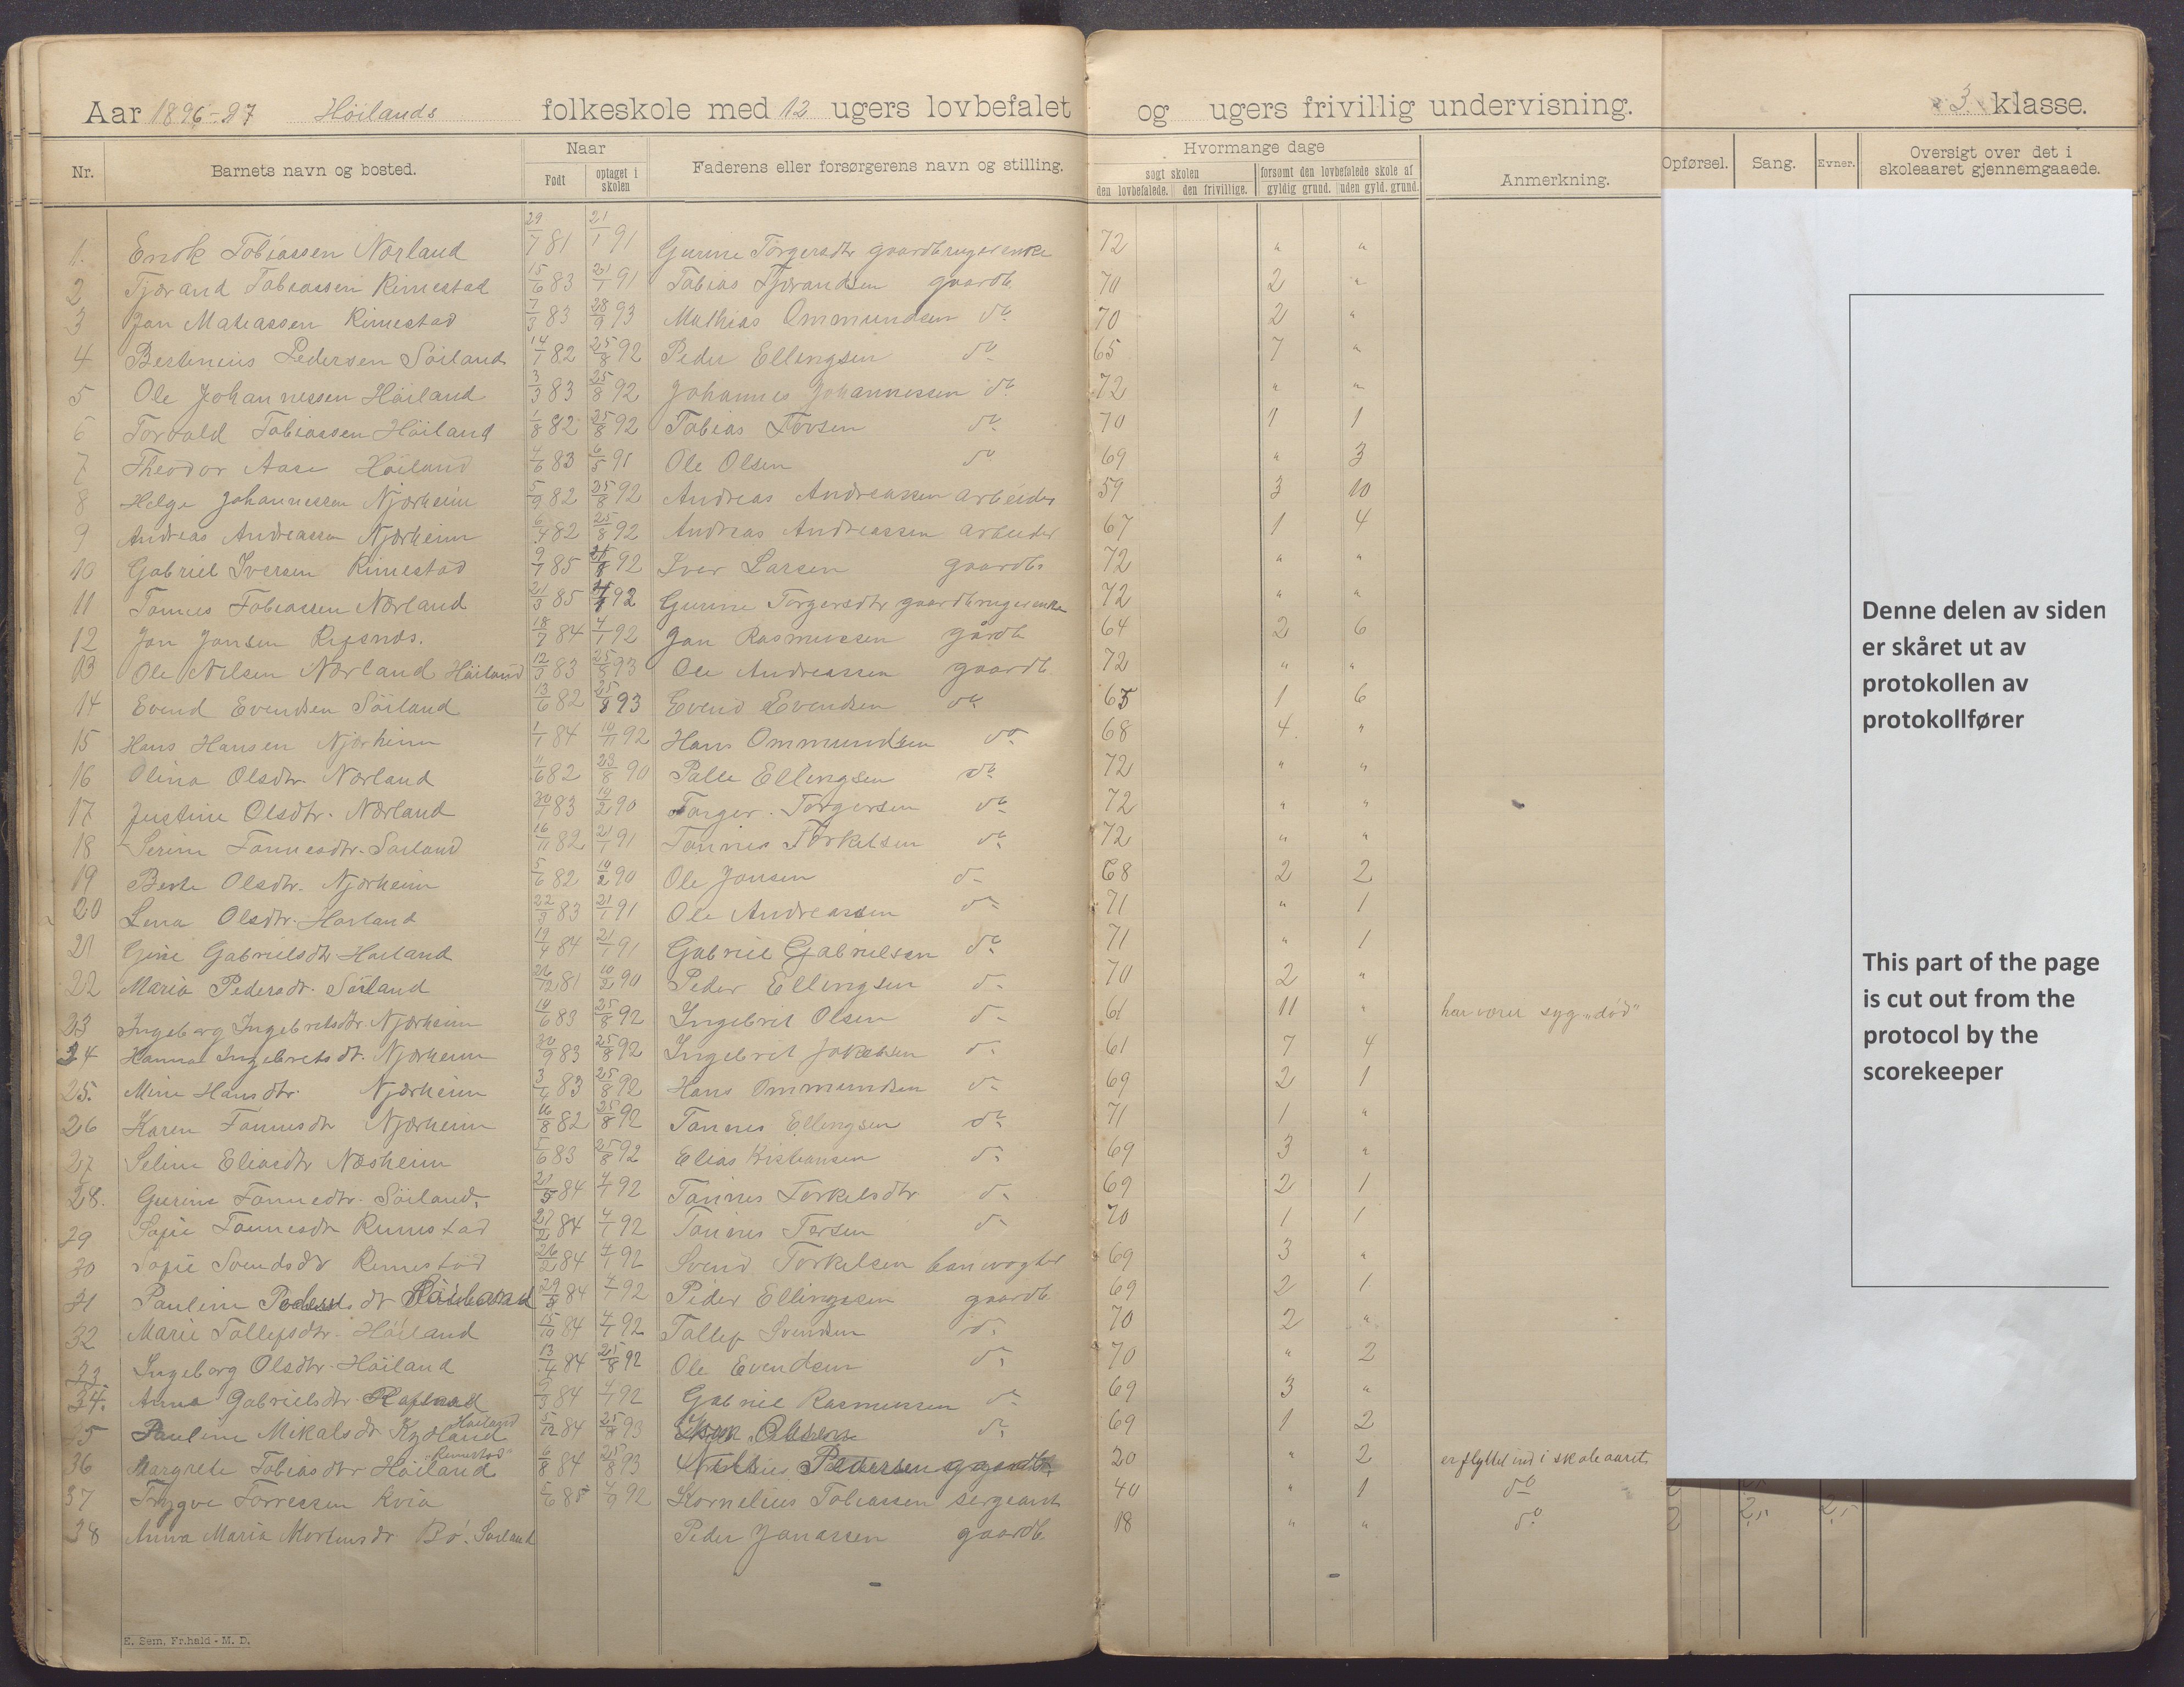 Aar 1896-97 Höilands folkeskole med 12 ugers lovbefalet og ugers frivillig undervisning. 3. klasse.
Nr. Barnets navn og bosted. Naar Faderens eller forsørgerens navn og stilling. Hvormange dage Anmerkning. Opførsel. Sang. Evner. Oversigt over det i skoleaaret gjennemgaaede.
Født optaget i skolen søgt skolen forsømt den lovbefalede skole af
den lovbefalede. den frivillige. gyldig grund. uden gyld. grund.
1. Enok Tobiassen Nærland 29/7 81 21/1 91 Gurine Torgersdtr gaardbrugerenke 72 " "
2 Tjærand Tobiassen Rimestad 15/6 83 21/1 91 Tobias Tjærandsen gaardb. 70 2 "
3 Jan Matiassen Rimestad 7/3 83 28/9 93 Mathias Ommundsen do 70 2 "
4 Bertineus Pedersen Söiland 14/1 82 25/8 92 Peder Ellingsen do 65 7 "
5 Ole Johannessen Höiland 3/3 83 25/8 92 Johannes Johannessen do 72 " "
6 Torvald Tobiassen Höiland 1/8 82 25/8 92 Tobias Torsen do 70 1 1
7 Theodor Aase Höiland 4/6 83 6/5 91 Ole Olsen do 69 " 3
8 Helge Johannessen Njærheim 5/9 82 25/8 92 Andreas Andreassen arbeider 59 3 10
9 Andreas Andreassen Njærheim 82 25/8 92 Andreas Andreassen arbeider 67 1 4
10 Gabriel Iversen Rimestad 85 92 Iver Larsen gaardb. 72 " "
11 Tønnes Tobiassen Nærland 21/3 85 92 Gurine Torgersdtr gaardbrugerenke 72 " "
12 Jan Jansen 18/7 84 4/1 92 Jan Rasmussen gårdb 64 2 6
13 Ole Nilsen Nærland Höiland 12/3 83 93 Ole Andreassen gaardb. 72 " "
14 Evend Evendsen Söiland 13/6 82 25/8 93 Evend Evendsen do 65 1 6
15 Hans Hansen Njærheim 1/1 84 92 Hans Ommundsen do 68 4. "
16 Olina Olsdtr. Nærland 11/6 82 23/8 90 Palle Ellingsen do 72 " "
17 Justine Olsdtr. Nærland 83 90 Torger. Torgersen do 72 " "
18 Serine Tønnesdtr. Söiland 16/11 82 21/1 91 Tønnes Torkelsen do 72 " "
19 Berte Olsdtr. Njærheim 5/6 82 90 Ole Jansen do 68 2 2
20 Lena Olsdtr. Höiland 83 21/1 91 Ole Andreassen do 71 " 1
21 Gine Gabrielsdtr Höiland 19/4 84 21/1 91 Gabriel Gabrielsen do 71 " 1
22 Maria Pedersdtr. Söiland 26/12 81 90 Peder Ellingsen do 70 2 "
23 Ingeborg Ingebretsdtr. Njærheim 83 25/8 92 Ingebret Olsen do 61 11 " har været syg „død"
24 Hanna Ingebretsdt. Njærheim 83 25/8 92 Ingebret Jakobsen do 61 7 4
25. Mine Hansdtr. Njærheim 83 25/8 92 Hans Ommundsen do 69 2 1
26 Karen Tønnesdtr Njærheim 16/8 82 25/8 92 Tønnes Ellingsen do 71 1 "
27 Seline Eliasdtr Næsheim 5/6 83 25/8 92 Elias Kristiansen do 69 3 "
28. Gurine Tønnesdtr. Söiland. 21/5 84 4/1 92 Tønnes Torkelsdtr do 69 2 1
29 Sofie Tønnesdtr Rimestad 27/2 84 4/1 92 Tønnes Torsen do 70 1 1
30 Sofie Svendsdtr Rimestad 26/2 84 4/1 92 Svend Torkelsen banvogter 69 3 "
31 Pauline Peders dtr 84 4/1 92 Peder Ellingsen gaardb 69 2 1
32 Marie Tollefsdtr. Höiland 84 4/1 92 Tollef Svendsen do 70 2 "
33 Ingeborg Olsdtr. Höiland 13/4 84 25/8 92 Ole Evendsen do 70 " 2
34. Anna Gabrielsdtr 84 4/1 92 Gabriel Rasmussen do 69 3 "
35 Pauline Mikalsdtr Kydland Höiland 5/12 84 93 Olsen do 69 1 2
36 Margrete Tobiasdtr Höiland „Rimestad" 6/8 84 25/8 93 Pedersen gaardb. 20 " 2 er flyttet ind i skoleaaret.
37 Trygve Torressen Kvia 85 92 Kornelius Tobiassen sergeant 40 " 1 do
38 Anna Maria Mortensdtr Bø. Söiland Peder Janassen gaardb. 18 " " do 2 2,5 2,5
Denne delen av siden
er skåret ut av
protokollen av
protokollfører
This part of the page
is cut out from the
protocol by the
scorekeeper
E. Sem, Fr.hald - M. D.